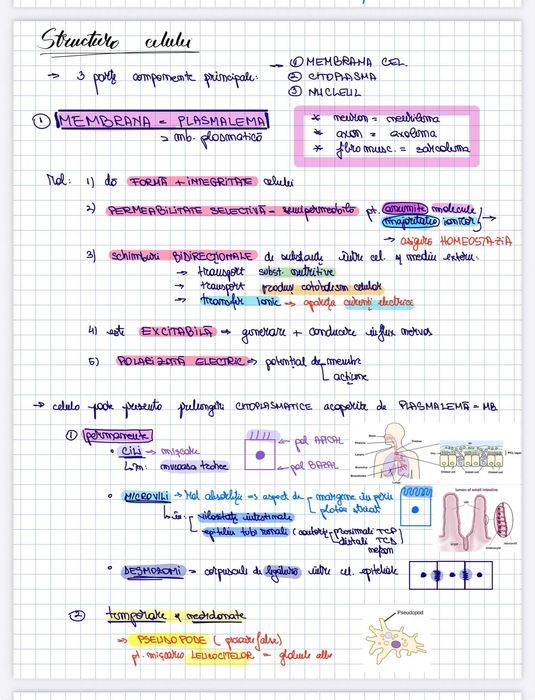 Structura celulei
→ 3 părți componente principale:
→ ① MEMBRANA CEL.
② CITOPLASMA
③ NUCLEUL
① MEMBRANA = PLASMALEMA
↳ mb. plasmatică
* neuron = neurilema
* axon = axolema
* fibra musc. = sarcolema
Rol: 1) dă FORMĂ + INTEGRITATE celulei
2) PERMEABILITATE SELECTIVĂ = semipermeabilă pt. anumite molecule
majoritatea ionilor →
→ asigură HOMEOSTAZIA
3) schimburi BIDIRECȚIONALE de substanțe între cel. și mediu extern:
→ transport subst. nutritive
→ transport produși catabolism celular
→ transfer ionic → apariția curenți electrici
4) este EXCITABILĂ → generare + conducere influx nervos
5) POLARIZATĂ ELECTRIC → potențial de membr
acțiune
→ celula poate prezenta prelungiri CITOPLASMATICE acoperite de PLASMALEMĂ = MB
① permanente
• CILI → mișcare
↳ în: mucoasa traheei
→ pol APICAL
→ pol BAZAL
• MICROVILI → Rol absorbție => aspect de margine în perie
platou striat
↳ în: vilozități intestinale
epiteliu tubi renali (contorți proximali TCP
distali TCD
nefron
lumen of small intestine
• DESMOZOMI = corpusculi de legătură între cel. epiteliale
② temporare și neordonate
⇒ PSEUDOPODE (picioare false)
pt. mișcarea LEUCOCITELOR = globule albe
Pseudopod